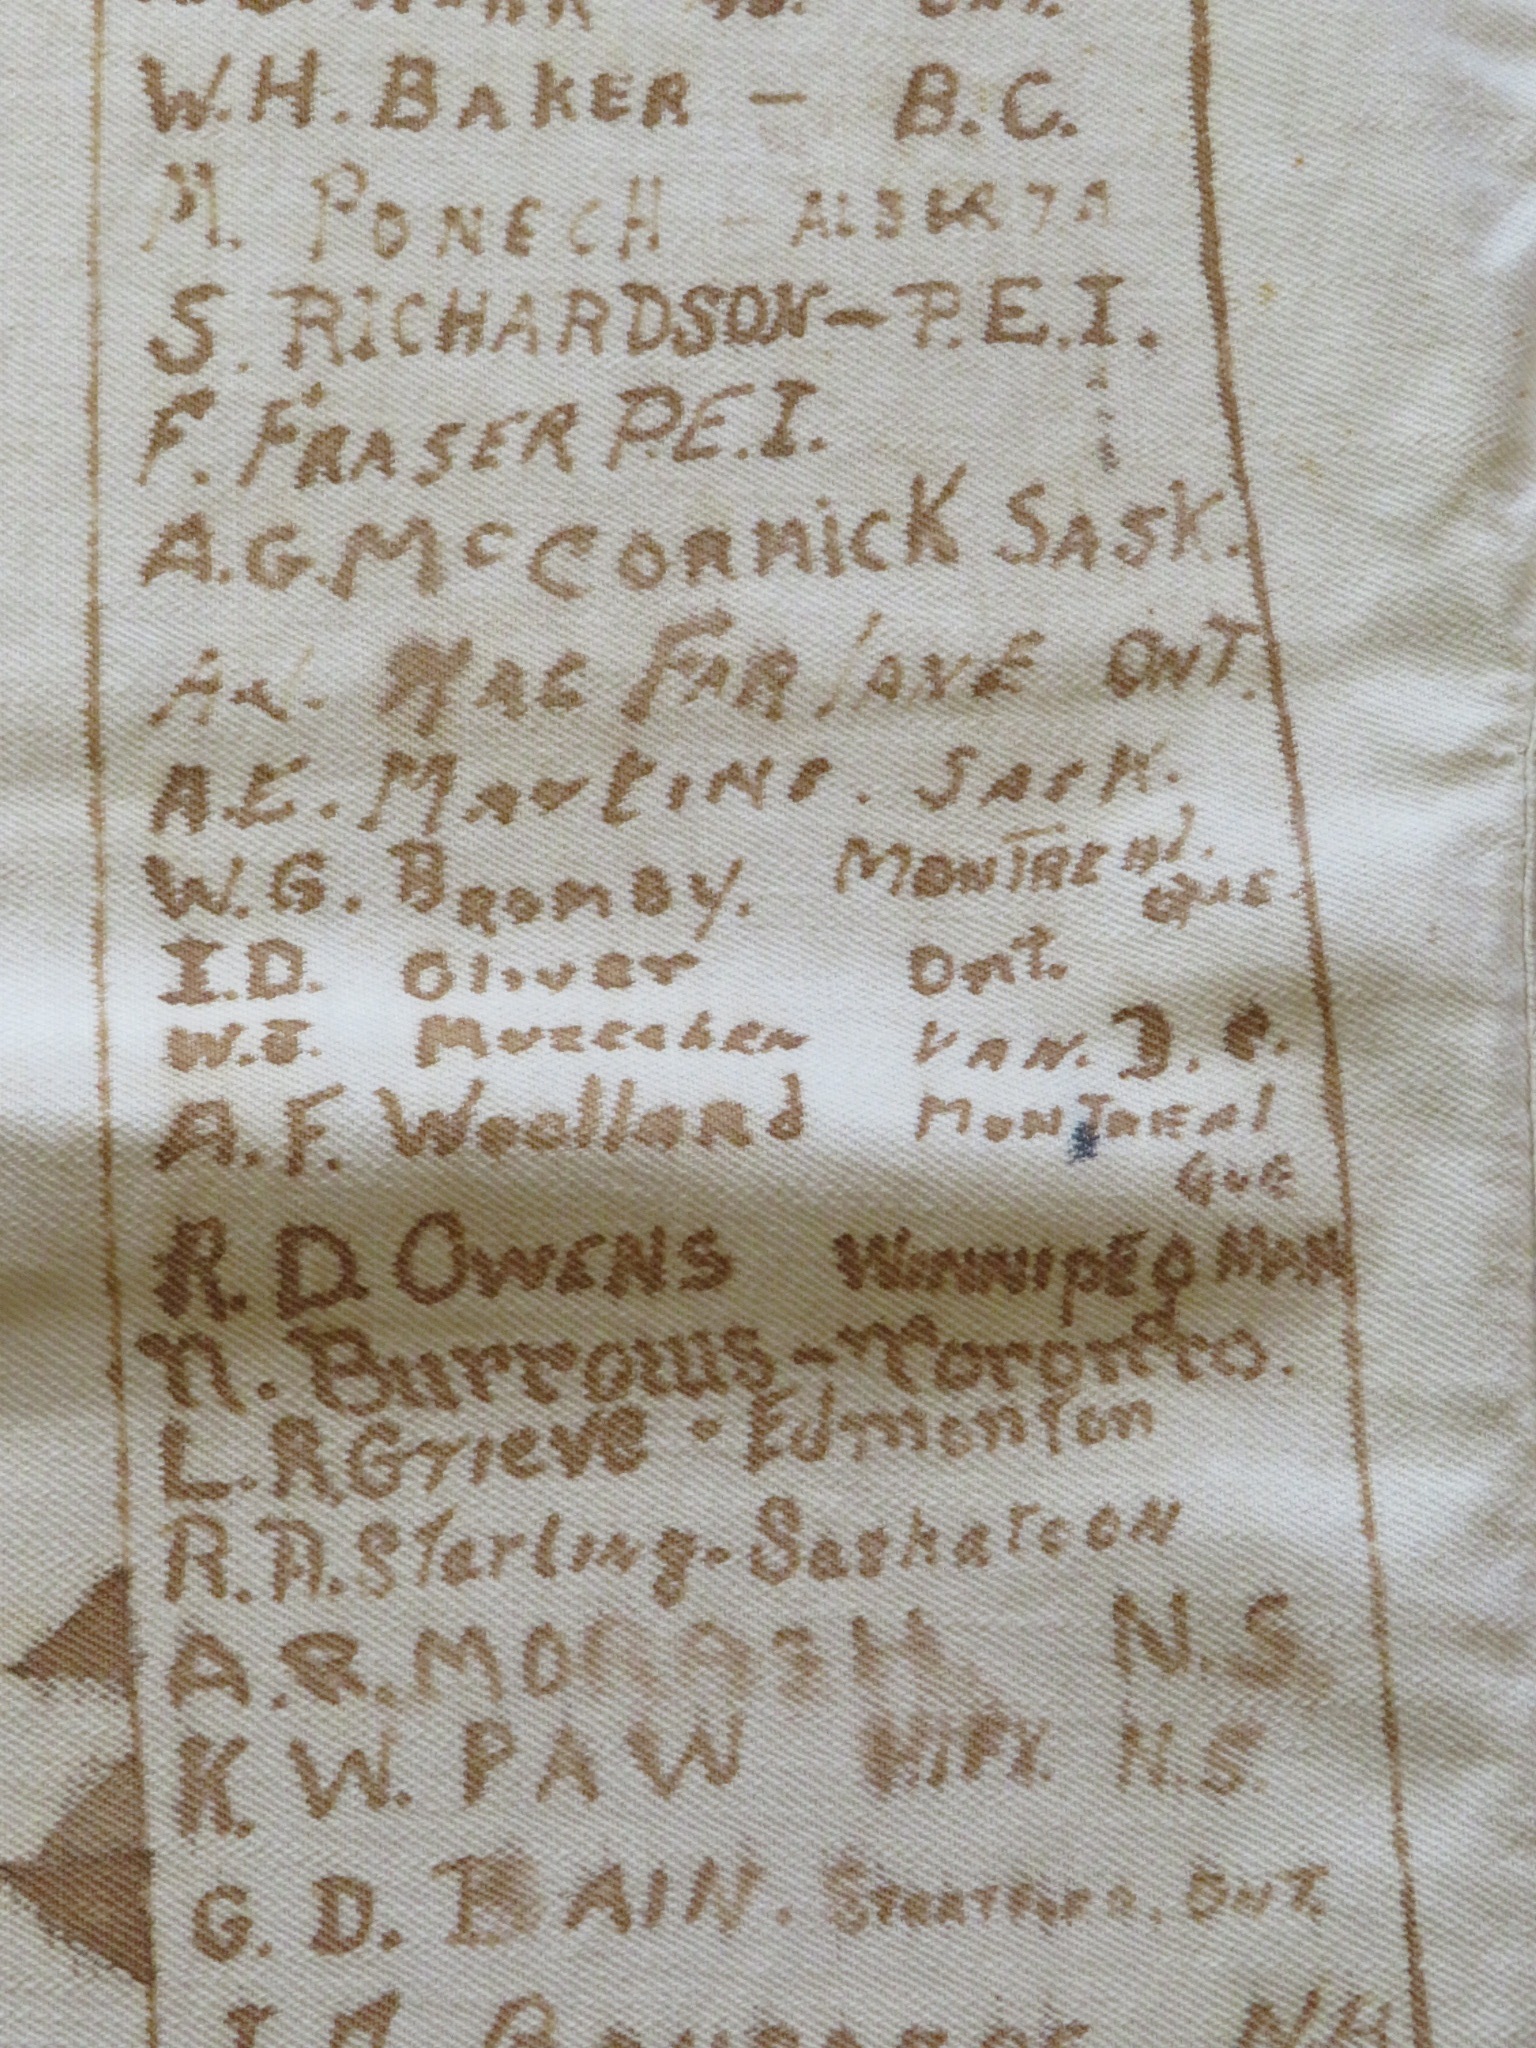 ONT.
W.H. BAKER - B.C.
M. PONECH - ALBERTA
S. RICHARDSON - P.E.I.
F. FRASER P.E.I.
A.G. McCORMICK SASK.
MAC FARLANE ONT.
A.E. Martins. SASK.
W.G. Bromby. MONTREAL.
QUE.
I.D. Oliver Ont.
W.J. VAN. B.C.
A.F. Woolland MONTREAL
QUE
R.D. OWENS WINNIPEG MAN
N. Burrows - Toronto.
L.R. Grieve - Edmonton
R.A. Sterling - Saskatoon
A.R. N.S.
K.W. PAW HIFX. N.S.
G.D. BAIN. STRATFORD, ONT.